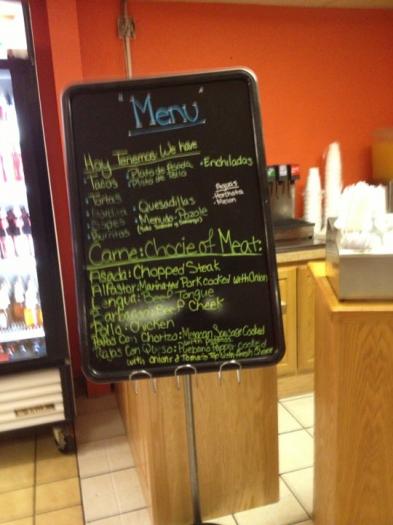 "Menu"
Hoy Tenemos We have
• Tacos • Plato de Asada • Enchiladas
• Tortas • Plato de Pollo
Aguas
• Horchata
• Quesadillas
• Melon
• Menudo, Pozole
• Burritos
Carne: Choice of Meat:
Asada: Chopped Steak
Alpastor: Marinated Pork cooked with Onion
Lengua: Beef Tongue
Beef Cheek
Pollo: Chicken
Papas Con Chorizo: Mexican Sausage Cooked
with Potatoes
Rajas Con Queso: Poblano Pepper cooked
with Onions & Tomato Top with Fresh Cheese